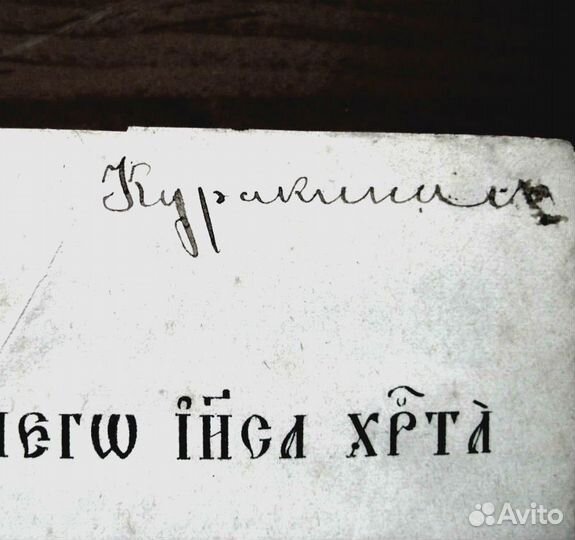 Куракина
егѡ І҆и҃са хрⷭ҇та̀
Avito